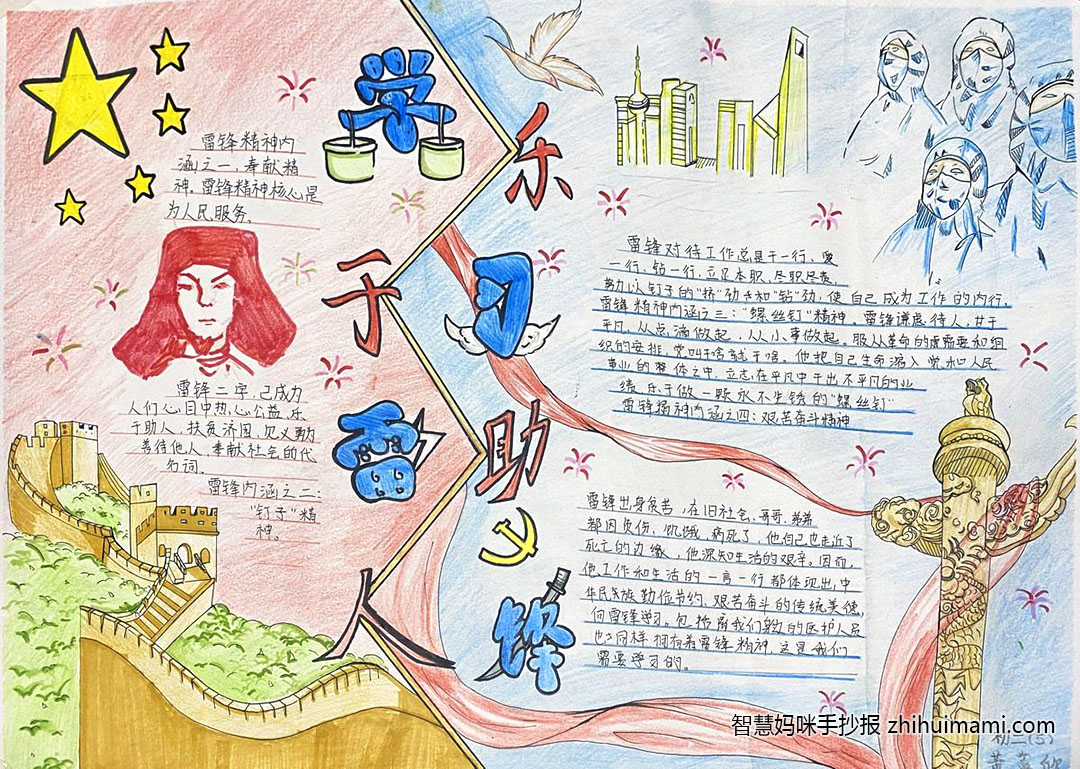 学
雷
习
锋
乐
于
助
人
雷锋精神内
涵之一,奉献精
神。雷锋精神核心是
为人民服务。
雷锋二字,已成为
人们心目中热心公益,乐
于助人,扶贫济困,见义勇为
善待他人,奉献社会的代
名词。
雷锋内涵之二:
"钉子"精
神。
雷锋对待工作总是干一行、爱
一行、钻一行,立足本职,尽职尽责,
努力以钉子的"挤"劲和"钻"劲,使自己成为工作的内行。
雷锋精神内涵之三:"螺丝钉"精神。雷锋谦虚待人,甘于
平凡,从点滴做起,从小事做起。服从革命的需要和组
织的安排,党叫干啥就干啥。他把自己生命深入党和人民
事业的整体之中,立志在平凡中干出不平凡的业
绩,乐于做一颗永不生锈的"螺丝钉"
雷锋扬神内涵之四:艰苦奋斗精神
雷锋出身很苦,在旧社会,哥哥、弟弟
都因负伤、饥饿、病死了,他自己也走近了
死亡的边缘,他深知生活的艰辛。因而,
他工作和生活的一言一行都体现出,中
华民族勤俭节约、艰苦奋斗的传统美德,
向雷锋学习。包括我们身边的医护人员
也同样拥有着雷锋精神,这是我们
需要学习的。
智慧妈咪手抄报 zhihuimami.com
初二(5)